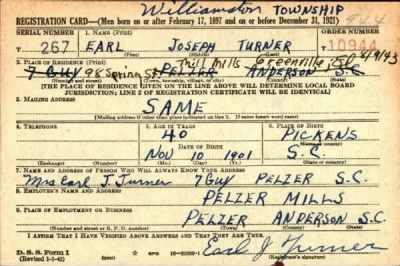 Williamston TOWNSHIP
REGISTRATION CARD—(Men born on or after February 17, 1897 and on or before December 31, 1921)
SERIAL NUMBER 1. NAME (Print) ORDER NUMBER
T 267 EARL JOSEPH TURNER 10944
(First) (Middle) (Last)
2. PLACE OF RESIDENCE (Print) Mill Mills Greenville, SC 8/9/43
7 GUY 98 Spring St PELZER ANDERSON S.C.
(Number and street) (Town, township, village, or city) (County) (State)
[THE PLACE OF RESIDENCE GIVEN ON THE LINE ABOVE WILL DETERMINE LOCAL BOARD
JURISDICTION; LINE 2 OF REGISTRATION CERTIFICATE WILL BE IDENTICAL]
3. MAILING ADDRESS
SAME
[Mailing address if other than place indicated on line 2. If same insert word same]
4. TELEPHONE 5. AGE IN YEARS 6. PLACE OF BIRTH
40 PICKENS
DATE OF BIRTH (Town or county)
NOV 10 1901 S.C.
(Exchange) (Number) (Mo.) (Day) (Yr.) (State or country)
7. NAME AND ADDRESS OF PERSON WHO WILL ALWAYS KNOW YOUR ADDRESS
Mrs Earl J. Turner 7 Guy PELZER S.C.
8. EMPLOYER'S NAME AND ADDRESS
PELZER MILLS
9. PLACE OF EMPLOYMENT OR BUSINESS
PELZER ANDERSON S.C.
(Number and street or R. F. D. number) (Town) (County) (State)
I AFFIRM THAT I HAVE VERIFIED ABOVE ANSWERS AND THAT THEY ARE TRUE.
D. S. S. Form 1
(Revised 1-1-42) (over) GPO Earl J Turner